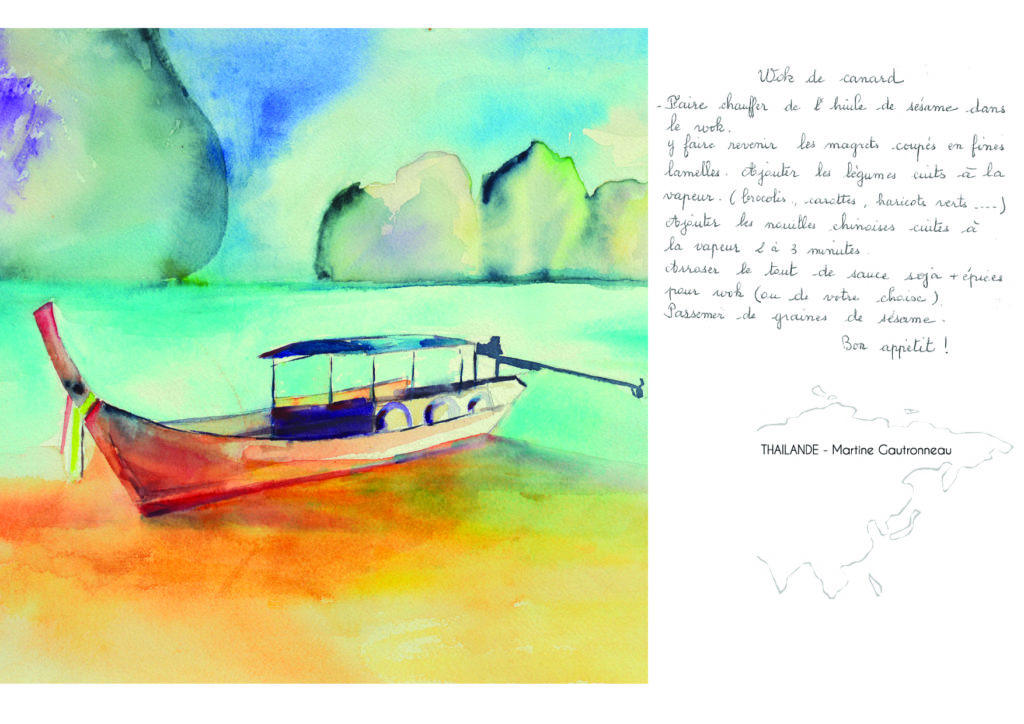 Wok de canard
- Faire chauffer de l'huile de sésame dans
le wok.
y faire revenir les magrets coupés en fines
lamelles. Ajouter les légumes cuits à la
vapeur. (brocolis, carottes, haricots verts ....)
Ajouter les nouilles chinoises cuites à
la vapeur 2 à 3 minutes.
Arroser le tout de sauce soja + épices
pour wok (ou de votre choise).
Parsemer de graines de sésame.
Bon appétit !
THAILANDE - Martine Gautronneau